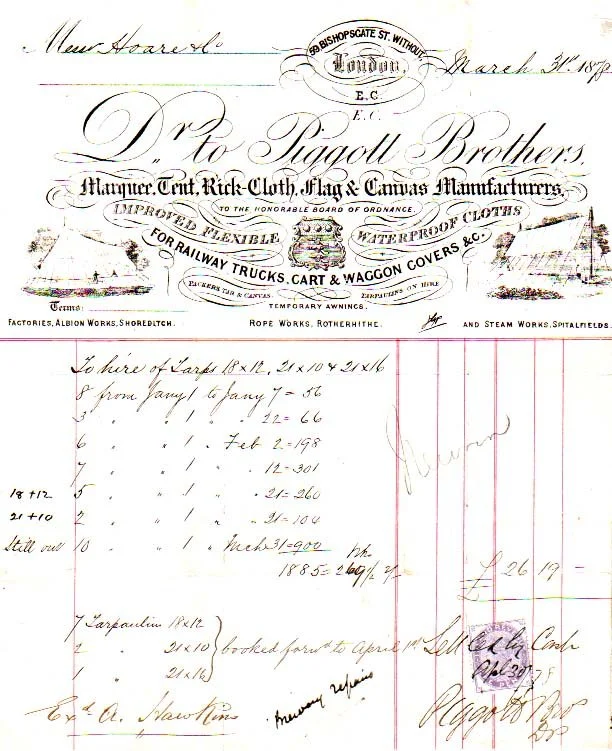 59, BISHOPSGATE ST. WITHOUT,
Mess Hoare & Co
London,
March 31st 1878
E.C.
E.C.
Dr. to Piggott Brothers,
Marquee, Tent, Rick-Cloth, Flag & Canvas Manufacturers,
TO THE HONORABLE BOARD OF ORDNANCE.
IMPROVED FLEXIBLE WATERPROOF CLOTHS
FOR RAILWAY TRUCKS, CART & WAGGON COVERS &C.
PACKERS, TAR & CANVAS TARPAULINS ON HIRE
Terms:
TEMPORARY AWNINGS.
FACTORIES, ALBION WORKS, SHOREDITCH. ROPE WORKS, ROTHERHITHE. AND STEAM WORKS, SPITALFIELDS.
To hire of Tarps 18x12, 21x10 & 21x16
8 from Jany 1 to Jany 7 = 56
3 " " 1 " " 22 = 66
6 " " 1 " Feb 2 = 198
7 " " 1 " " 12 = 301
18+12 5 " " 1 " " 21 = 260
21+10 2 " " 1 " " 21 = 104
Still out 10 " " 1 " Mch 31 = 900
1885 =
£ 26 19 –
7 Tarpaulin 18x12
2 " 21x10 } booked forwd to April 1st Sett Cash
1 " 21x16
Apl 30 78
Exd A. Hawkins
Brewery repairs
Piggott Bro